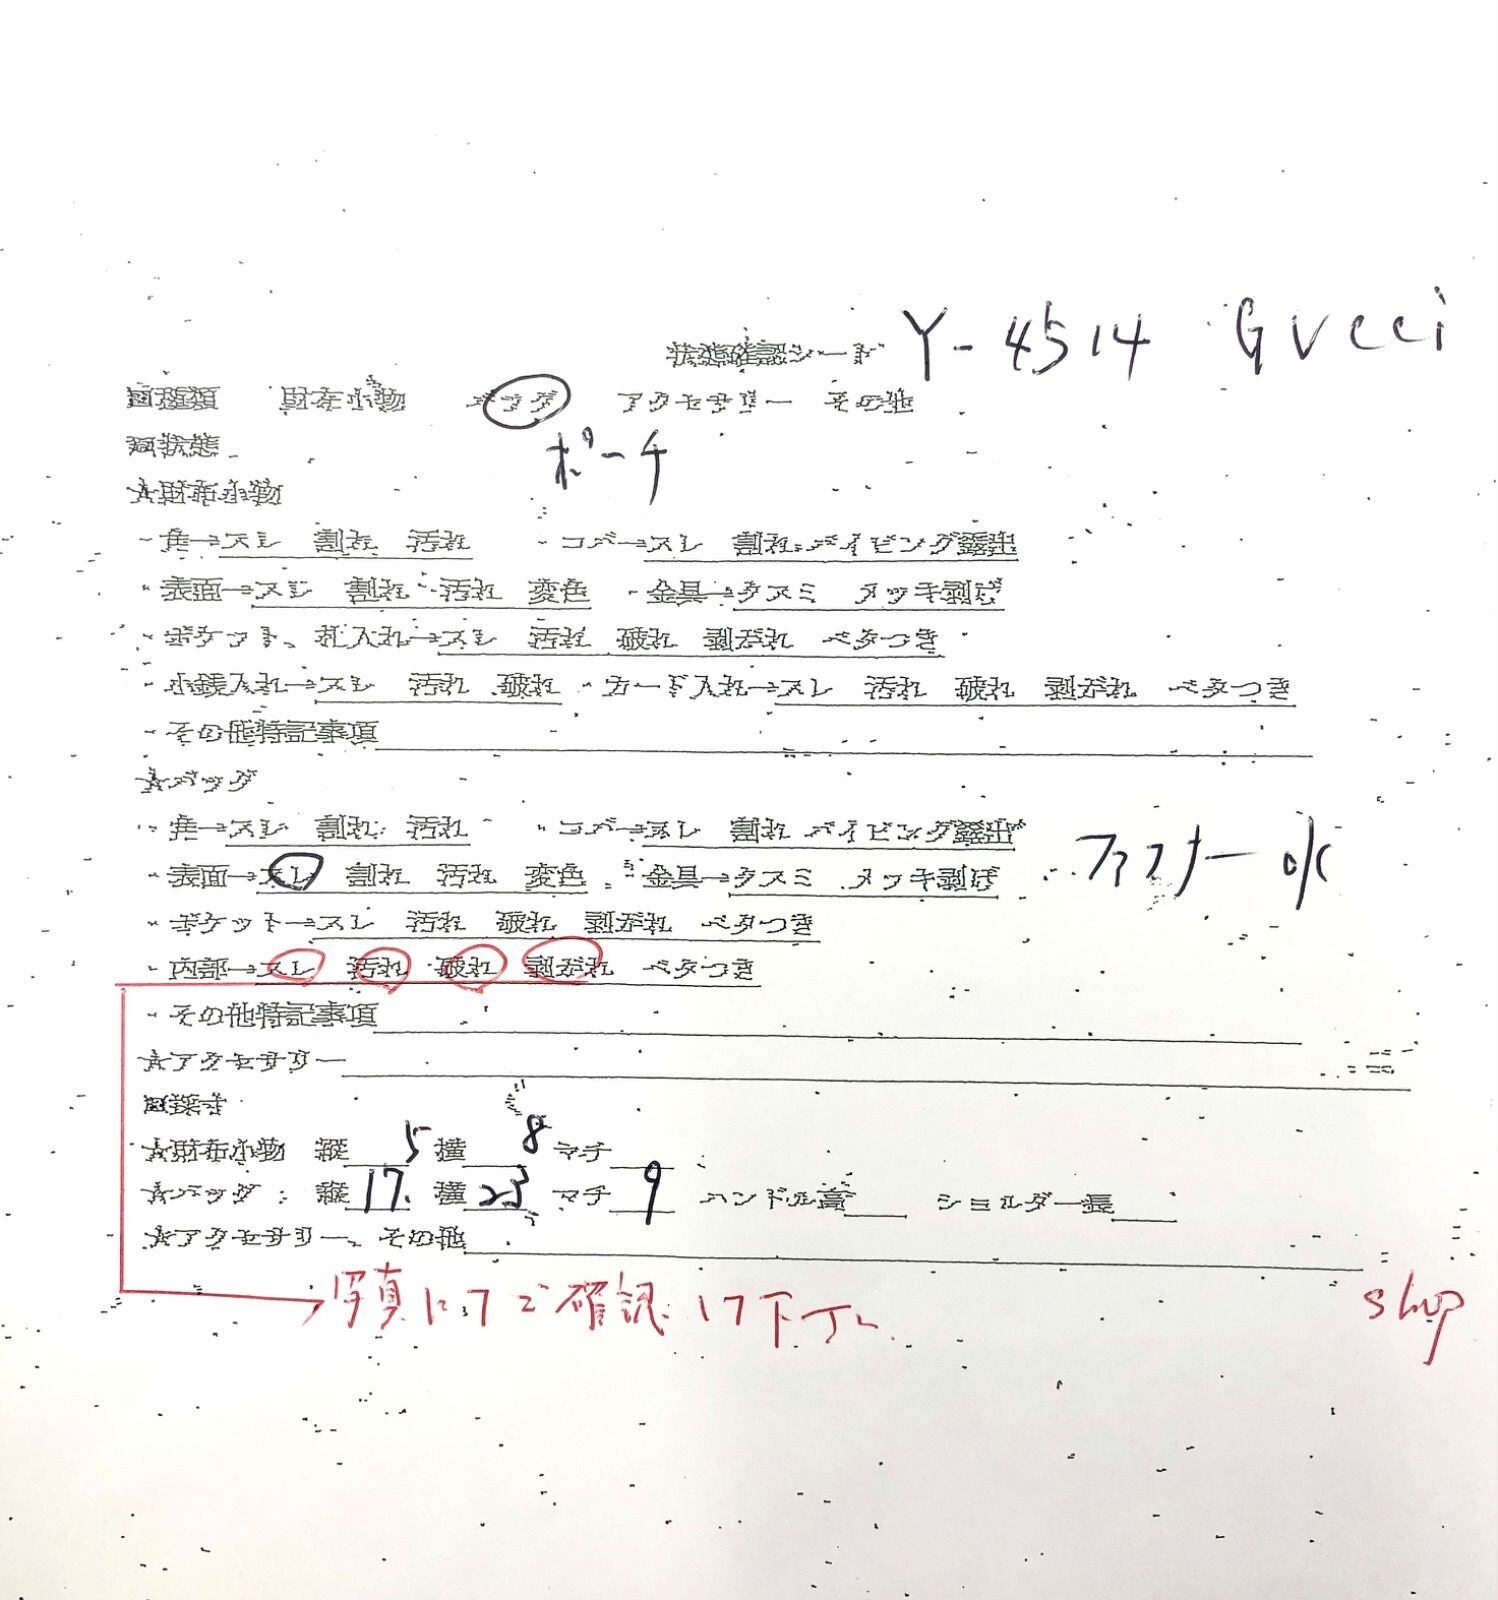 状態確認シート Y-4514 GUCCI
種類 財布小物 バッグ アクセサリー その他
状態 ポーチ
☆財布小物
・角→スレ 割れ 汚れ ・コバ→スレ 割れ パイピング露出
・表面→スレ 割れ 汚れ 変色 ・金具→クスミ メッキ剥げ
・ポケット、札入れ→スレ 汚れ 破れ 剥がれ ベタつき
・小銭入れ→スレ 汚れ 破れ ・カード入れ→スレ 汚れ 破れ 剥がれ ベタつき
・その他特記事項
☆バッグ
・角→スレ 割れ 汚れ ・コバ→スレ 割れ パイピング露出
・表面→スレ 割れ 汚れ 変色 ・金具→クスミ メッキ剥げ ファスナー ok
・ポケット→スレ 汚れ 破れ 剥がれ ベタつき
・内部→スレ 汚れ 破れ 剥がれ ベタつき
・その他特記事項
☆アクセサリー
採寸
☆財布小物 縦 5 横 8 マチ
☆バッグ：縦 17. 横 23 マチ 9 ハンドル高 ショルダー長
☆アクセサリー、その他
写真にてご確認して下さい shop